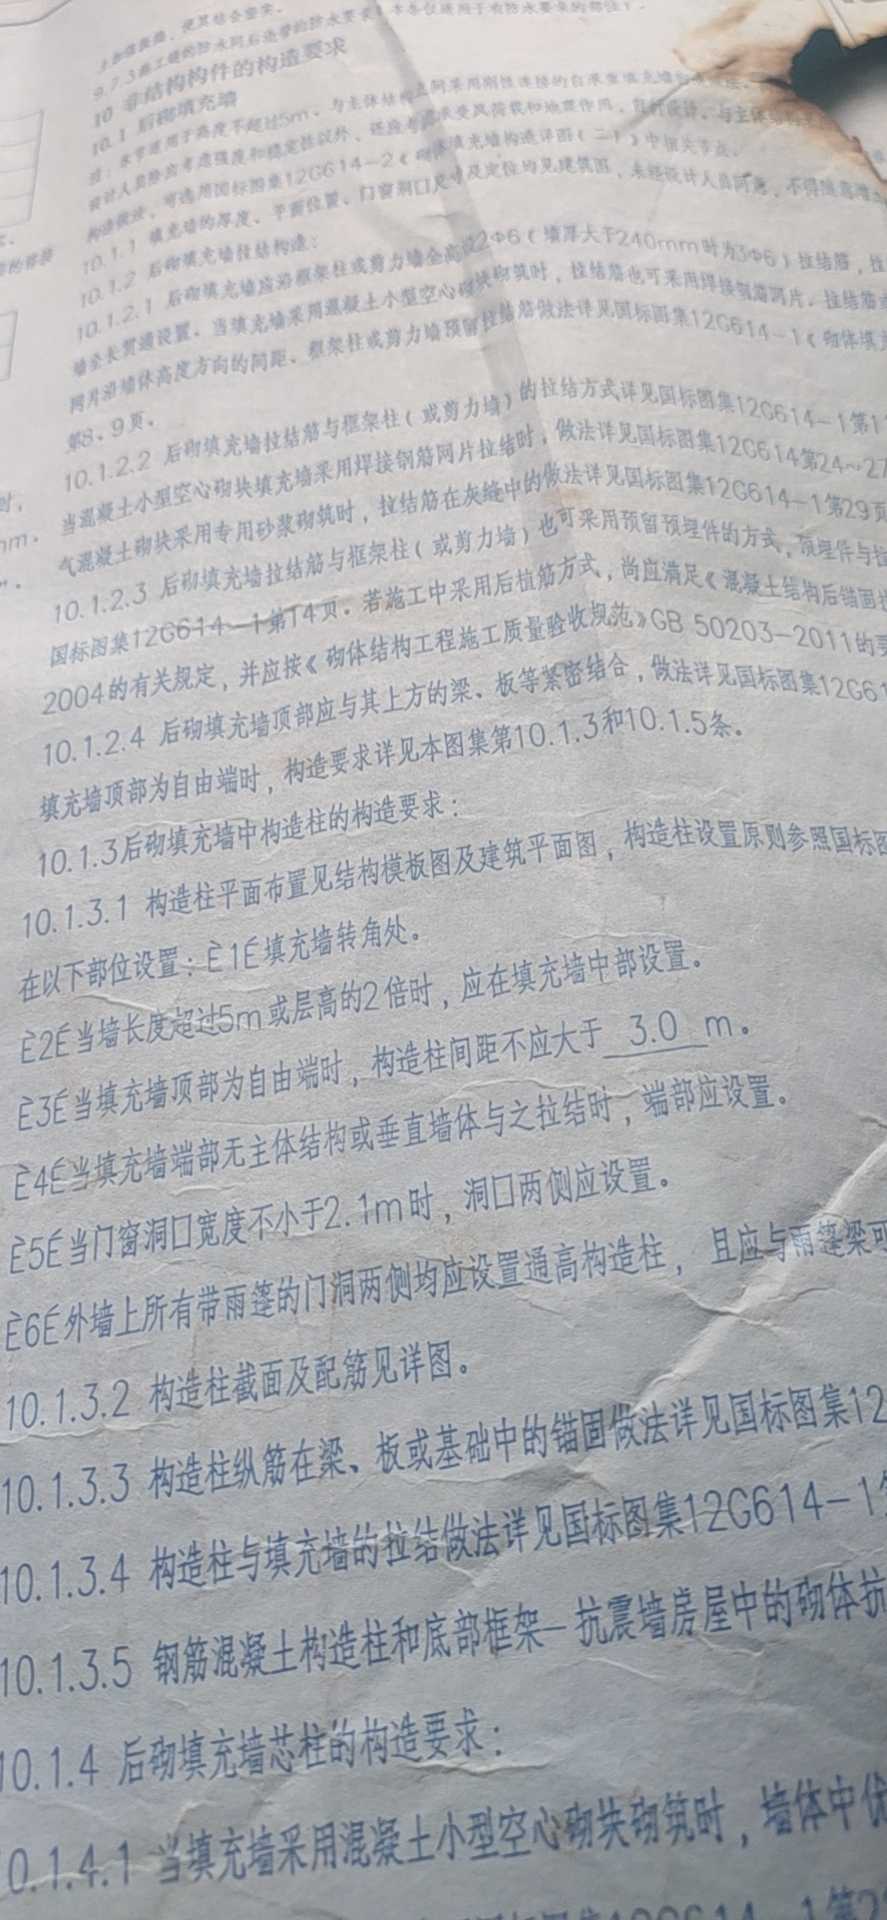 9.7.3施工缝的防水同后浇带的防水要求
10 非结构构件的构造要求
10.1 后砌填充墙
注：本节适用于高度不超过5m、与主体结构之间采用刚性连接的自承重填充墙
设计人员除应考虑强度和稳定性以外，还应考虑承受风荷载和地震作用，
构造做法，可选用国标图集12G614-2《砌体填充墙构造详图（二）》中相关节点。
10.1.1 填充墙的厚度、平面位置、门窗洞口尺寸及定位均见建筑图，未经设计人员同意，不得随意增
10.1.2 后砌填充墙拉结构造：
10.1.2.1 后砌填充墙应沿框架柱或剪力墙全高设2Φ6（墙厚大于240mm时为3Φ6）拉结筋，拉
墙全长贯通设置。当填充墙采用混凝土小型空心砌块砌筑时，拉结筋也可采用焊接钢筋网片。拉结筋
网片沿墙体高度方向的间距、框架柱或剪力墙预留拉结筋做法详见国标图集12G614-1《砌体填
第8、9页。
10.1.2.2 后砌填充墙拉结筋与框架柱（或剪力墙）的拉结方式详见国标图集12G614-1第1
当混凝土小型空心砌块填充墙采用焊接钢筋网片拉结时，做法详见国标图集12G614第24~27
气混凝土砌块采用专用砂浆砌筑时，拉结筋在灰缝中的做法详见国标图集12G614-1第29页
10.1.2.3 后砌填充墙拉结筋与框架柱（或剪力墙）也可采用预留预埋件的方式，预埋件与
国标图集12G614-1第14页。若施工中采用后植筋方式，尚应满足《混凝土结构后锚固
2004的有关规定，并应按《砌体结构工程施工质量验收规范》GB 50203-2011的
10.1.2.4 后砌填充墙顶部应与其上方的梁、板等紧密结合，做法详见国标图集12G61
填充墙顶部为自由端时，构造要求详见本图集第10.1.3和10.1.5条。
10.1.3后砌填充墙中构造柱的构造要求：
10.1.3.1 构造柱平面布置见结构模板图及建筑平面图，构造柱设置原则参照国标图
在以下部位设置：È1É填充墙转角处。
È2É当墙长度超过5m或层高的2倍时，应在填充墙中部设置。
È3É当填充墙顶部为自由端时，构造柱间距不应大于 3.0 m。
È4É当填充墙端部无主体结构或垂直墙体与之拉结时，端部应设置。
È5É当门窗洞口宽度不小于2.1m时，洞口两侧应设置。
È6É外墙上所有带雨篷的门洞两侧均应设置通高构造柱，且应与雨篷梁可
10.1.3.2 构造柱截面及配筋见详图。
10.1.3.3 构造柱纵筋在梁、板或基础中的锚固做法详见国标图集12
10.1.3.4 构造柱与填充墙的拉结做法详见国标图集12G614-1
10.1.3.5 钢筋混凝土构造柱和底部框架-抗震墙房屋中的砌体抗
10.1.4 后砌填充墙芯柱的构造要求：
0.1.4.1 当填充墙采用混凝土小型空心砌块砌筑时，墙体中优